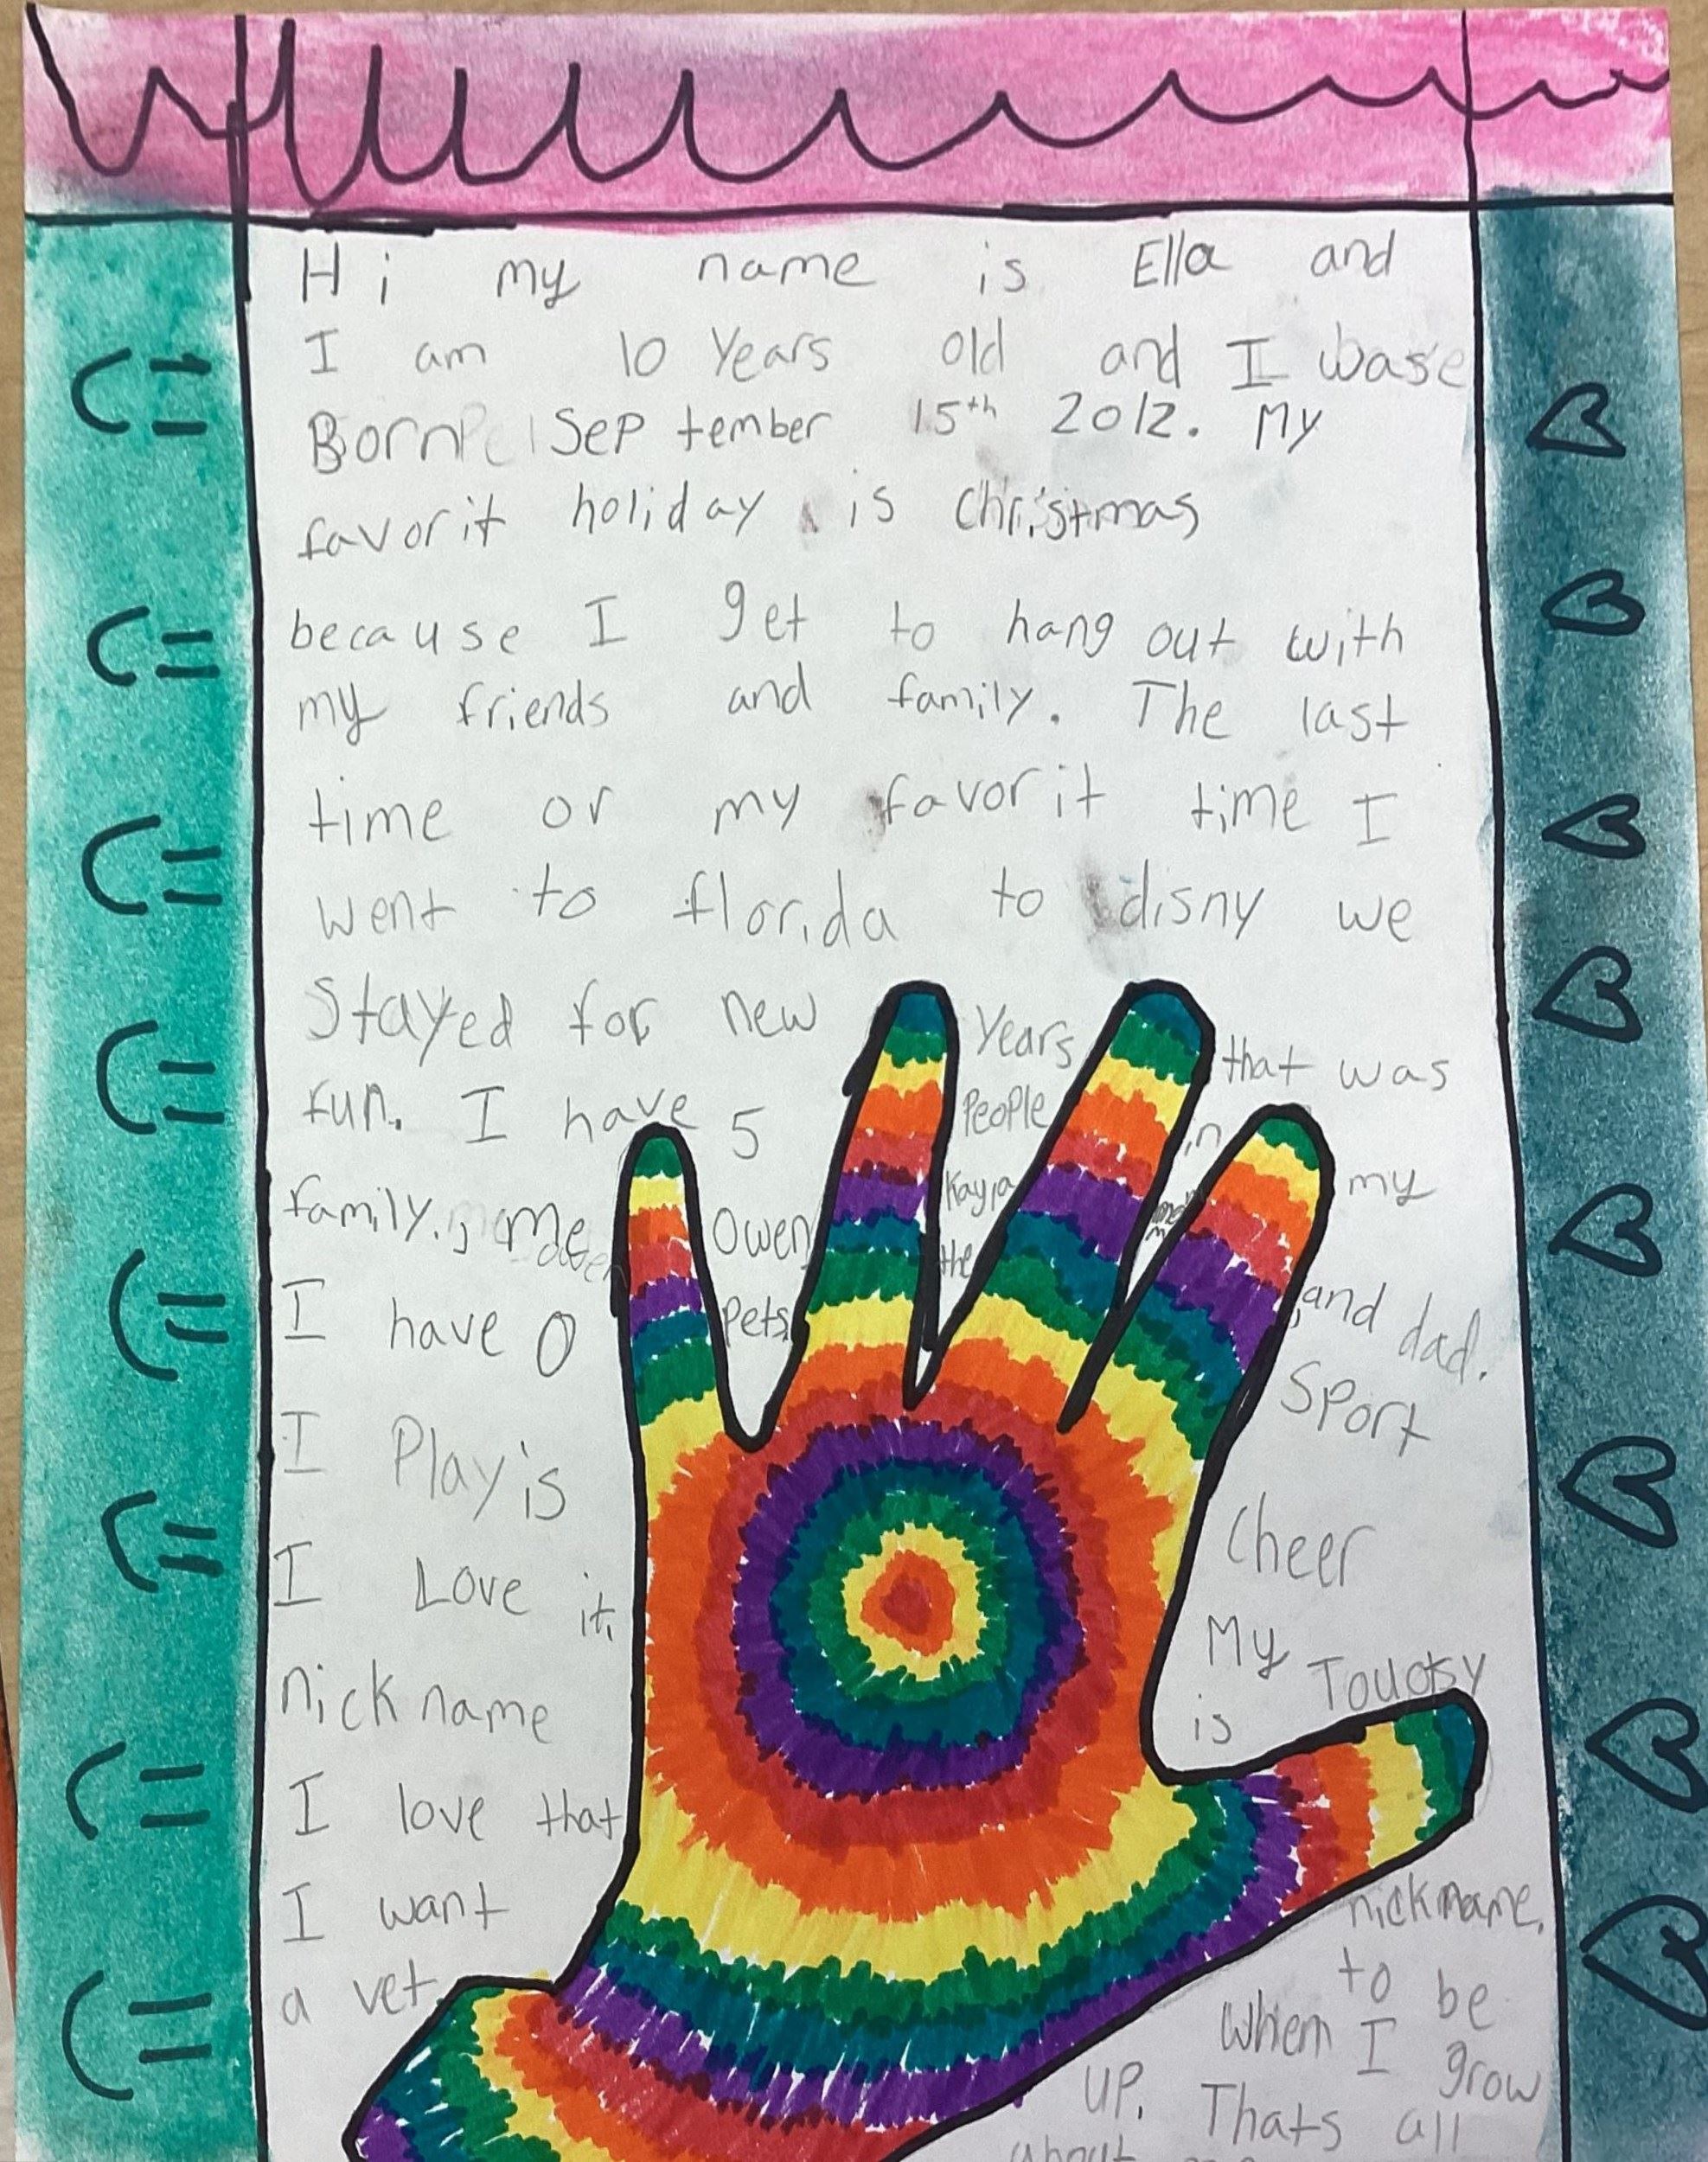 Hi my name is Ella and
I am 10 Years old and I wase
Born September 15th 2012. My
favorit holiday is Christmas
because I get to hang out with
my friends and family. The last
time or my favorit time I
went to florida to disny we
Stayed for new Years that was
fun. I have 5 People in my
family., me Owen, Kayla mom, and dad.
I have 0 Pets, the Sport
I Play is Cheer
I Love it, My
nick name is
I love that nickname.
I want to be
a vet. When I grow
UP. Thats all
about